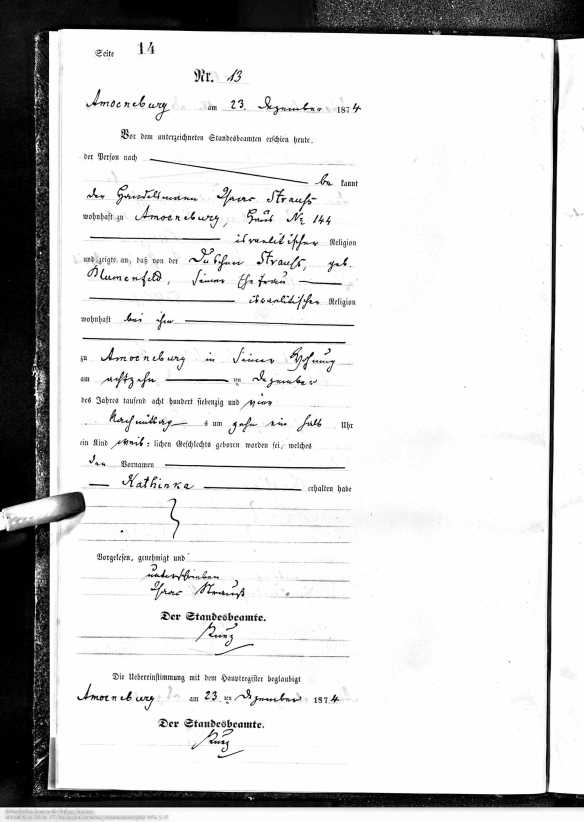 Seite 14
Nr. 13
Amoeneburg am 23. Dezember 1874
Vor dem unterzeichneten Standesbeamten erschien heute,
der Person nach
be kannt
der Handelsmann Isaac Strauß
wohnhaft zu Amoeneburg, Haus № 144
israelitischer Religion
und zeigte an, daß von der Strauß, geb.
Blumenfeld, seiner Ehefrau
israelitischer Religion
wohnhaft bei ihm
zu Amoeneburg in seiner Wohnung
am achtzehn ten Dezember
des Jahres tausend acht hundert siebenzig und vier
Nachmittag s um zehn ein halb Uhr
ein Kind weib: lichen Geschlechts geboren worden sei, welches
den Vornamen
Kathinka erhalten habe
Vorgelesen, genehmigt und
unterschrieben
Isaac Strauß
Der Standesbeamte.
Kurz
Die Uebereinstimmung mit dem Hauptregister beglaubigt
Amoeneburg am 23 ten Dezember 1874
Der Standesbeamte.
Kurz